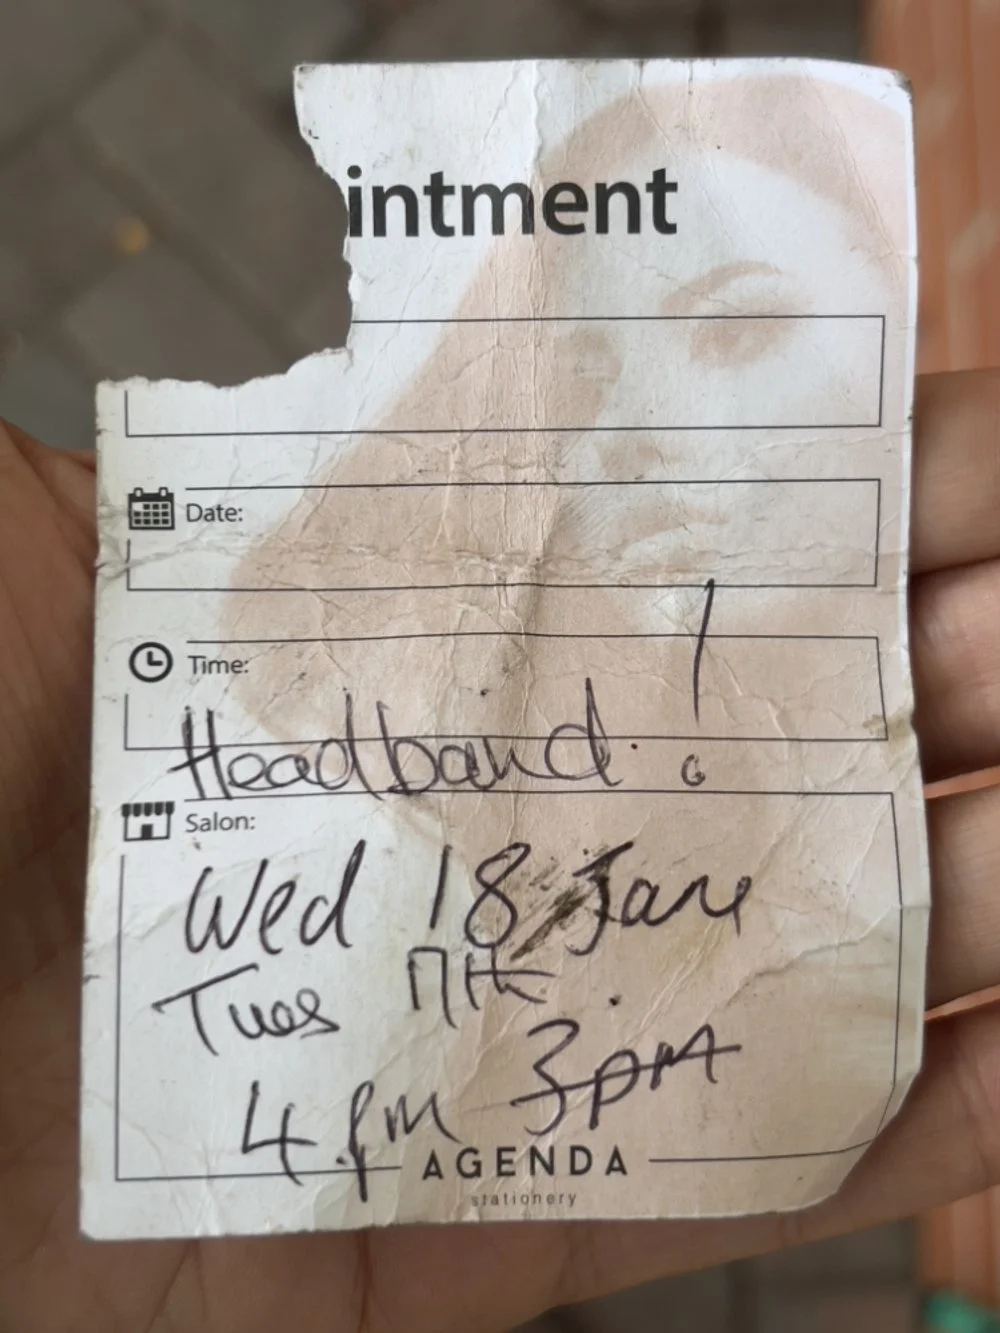 intment
Date:
Time:
Headband. !
Salon:
Wed 18 Jane
Tues 17th .
4.pm 3pm
AGENDA
stationery